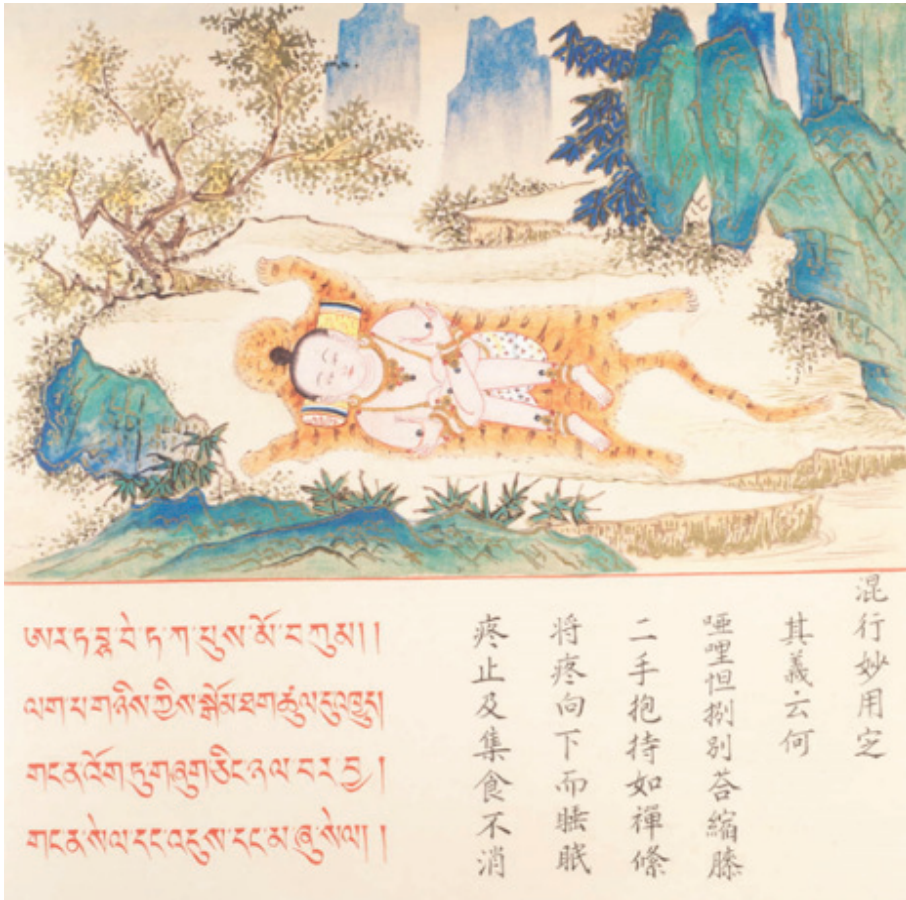 ཨར་ཏ་བྷ་བེ་ཏ་ཀ་པུས་མོ་བཀུམ། །
ལག་པ་གཉིས་ཀྱིས་སྒོམ་ཐག་ཚུལ་དུ་འཁྱུད།
གང་ན་འོག་ཏུ་གཞུག་ཅིང་ཉལ་བར་བྱ། །
གང་ན་སེལ་དང་འདུས་དང་མ་ཞུ་སེལ། །
混行妙用定
其義云何
唖哩怛捌别荅縮膝
二手抱持如禪絛
将疼向下而睡眠
疼止及集食不消